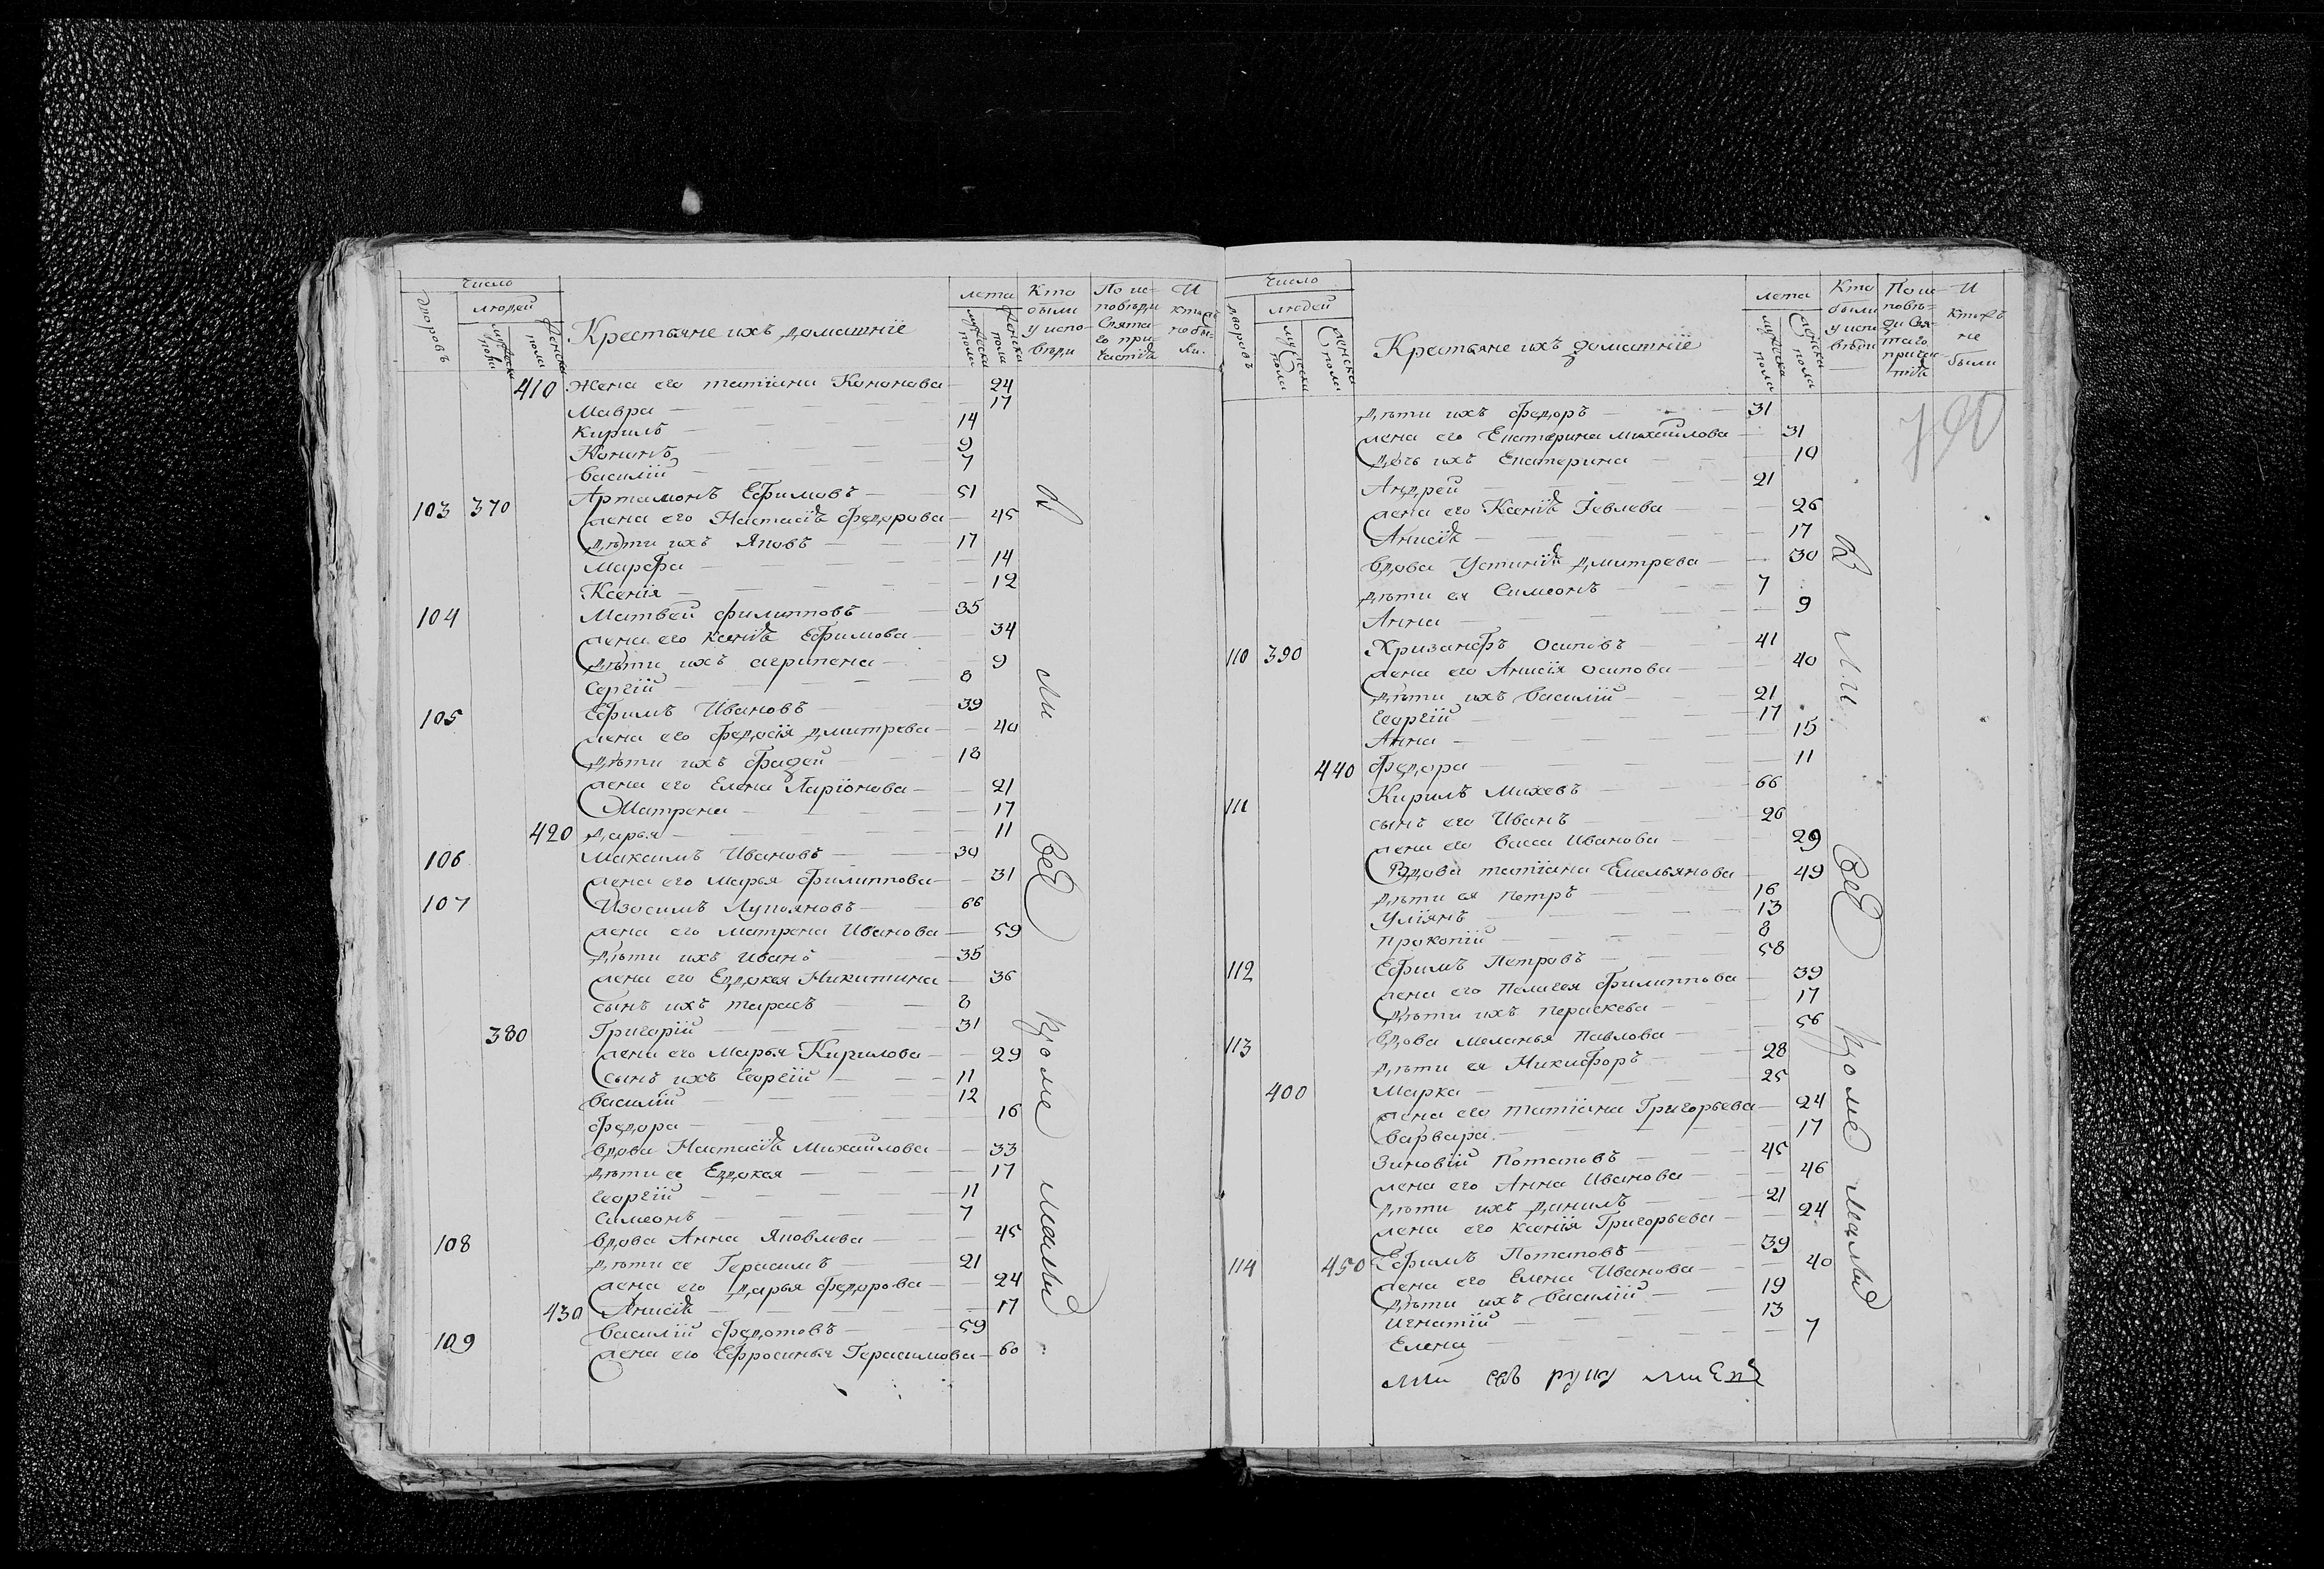 Число
дворовъ
людей
мужеска пола
женска пола
Крестьяне ихъ домашнїе
лета
мужеска пола
женска пола
Кто были у испо- веди
По ис- поведи Святa го при- частїѧ
И кто не бы- ли.
410 жена его татїана Кононова 24
Мавра 17
Кирилъ 14
Кононъ 9
Василїй 7
103 370 Артамонъ Ефимовъ 51
жена его Настасїѧ федорова 45
Дѣти ихъ Яковъ 17
Марфа 14
Ксенїя 12
104 Матвей филипповъ 35
жена его ксенїѧ Ефимова 34
Дѣти ихъ агрипена 9
Сергїй 8
105 Ефимъ Ивановъ 39
жена его федосїя дмитрева 40
Дѣти ихъ Фадей 18
жена его Елена Ларїонова 21
Матрена 17
420 Дарья 11
106 Максимъ Ивановъ 30
жена его Марья филиппова 31
107 Изосимъ Лупояновъ 66
жена его Матрена Иванова 59
Дѣти ихъ иванъ 35
жена его Евдокея Никитина 36
сынъ ихъ тарасъ 8
380 Григорїй 31
жена его Марья Кирилова 29
сынъ ихъ Георгїй 11
Василїй 12
Федора 16
вдова Настасїѧ Михайлова 33
дѣти ее Евдокея 17
Георгїй 11
Симеонъ 7
108 Вдова Анна Яковлева 45
дѣти ее Герасимъ 21
жена его Дарья федорова 24
430 Анисїѧ 17
109 Василїй федотовъ 59
жена его Ефросинья Герасимова 60
Бы ли Все Кроме малыѣ
Число
дворовъ
людей
мужеска пола
женска пола
Крестьяне ихъ домашнїе
лета
мужеска пола
женска пола
Кто были у испо веди
По ис поведи Свя- таго причас тїѧ
И кто не были
790
Дѣти ихъ федоръ 31
жена его Екатерина михайлова 31
Дочь ихъ Екатерина 10
Андрей 21
жена его Ксенїѧ Iевлева 26
Анисїѧ 17
Вдова Устинїѧ Дмитрева 30
дѣти ея Симеонъ 7
Анна 9
110 390 Хризанфъ осиповъ 41
жена его Анисїя осипова 40
дѣти ихъ Василїй 21
Георгїй 17
Анна 15
440 федора 11
111 Кирилъ Михевъ 66
сынъ его Иванъ 26
жена его васса Иванова 29
Вдова татїана Емельянова 49
дѣти ея петръ 16
Улїянъ 13
прокопїй 8
112 Ефимъ Петровъ 58
жена его Пелагея филиппова 39
Дѣти ихъ пераскева 17
113 Вдова меланья Павлова 56
дѣти ея Никифоръ 28
400 Марка 25
жена его татїана Григорьева 24
Варвара 17
Зиновїй Потаповъ 45
жена его Анна Иванова 46
Дѣти ихъ данилъ 21
жена его ксенїя Григорьева 24
114 450 Ефимъ Потаповъ 39
жена его Елена Иванова 40
Дѣти ихъ Василїй 19
Игнатїй 13
Елена 7
Бы ли Все Кроме малыѣ
руку